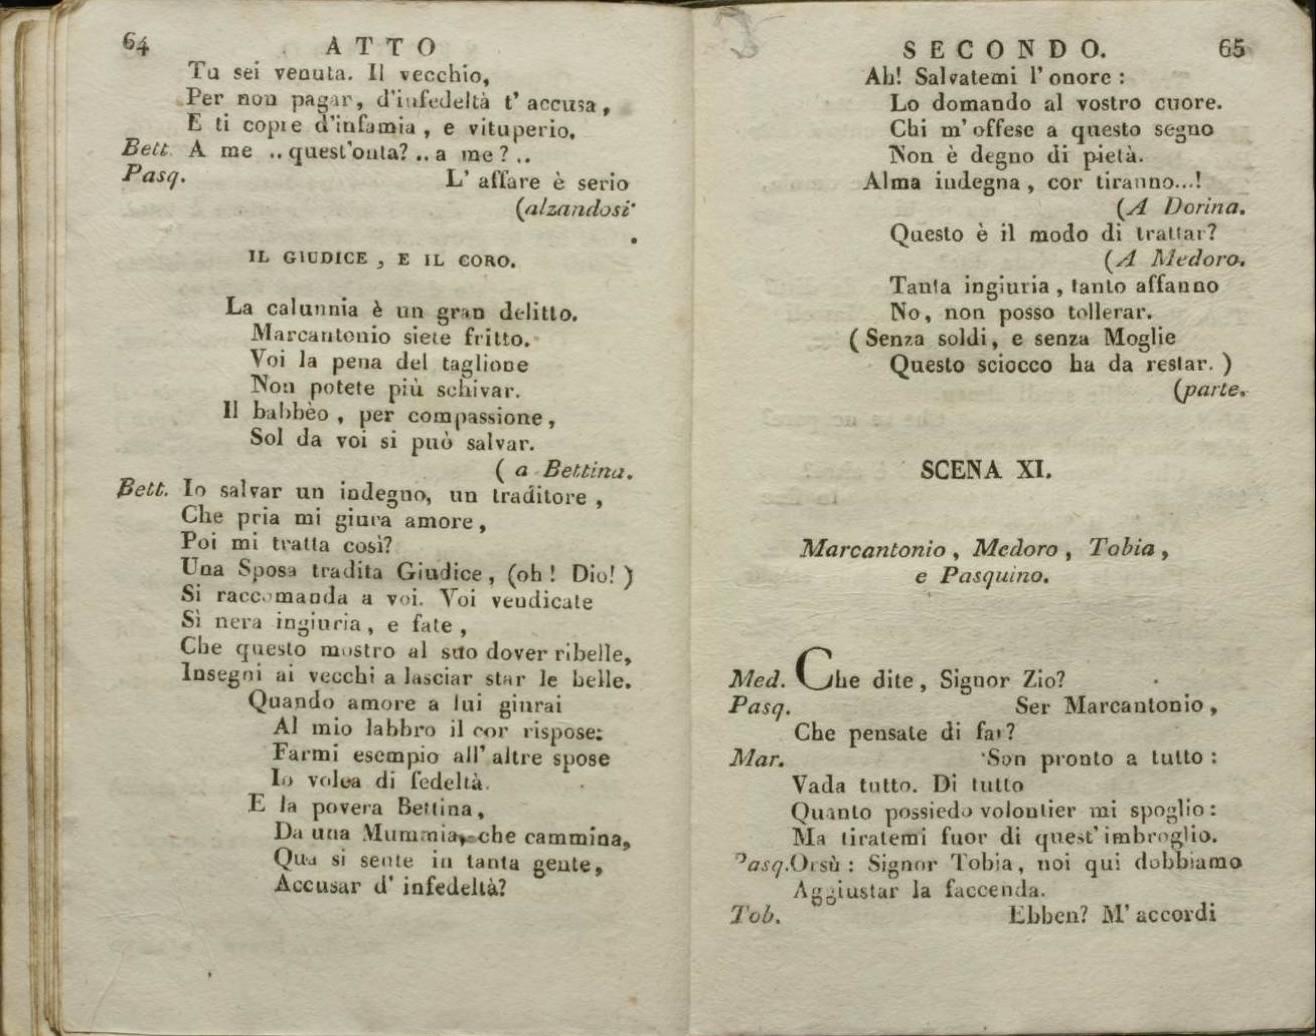 64
ATTO
Tu sei venuta. Il vecchio,
Per non pagar, d'infedeltà t' accusa,
E ti copre d'infamia, e vituperio.
Bett. A me .. quest'onta? .. a me? ..
Pasq. L' affare è serio
(alzandosi
IL GIUDICE, E IL CORO.
La calunnia è un gran delitto.
Marcantonio siete fritto.
Voi la pena del taglione
Non potete più schivar.
Il babbèo, per compassione,
Sol da voi si può salvar.
( a Bettina.
Bett. Io salvar un indegno, un traditore,
Che pria mi giura amore,
Poi mi tratta così?
Una Sposa tradita Giudice, (oh! Dio!)
Si raccomanda a voi. Voi vendicate
Sì nera ingiuria, e fate,
Che questo mostro al suo dover ribelle,
Insegni ai vecchi a lasciar star le belle.
Quando amore a lui giurai
Al mio labbro il cor rispose:
Farmi esempio all' altre spose
Io volea di fedeltà.
E la povera Bettina,
Da una Mummia, che cammina,
Qua si sente in tanta gente,
Accusar d' infedeltà?
SECONDO.
65
Ah! Salvatemi l' onore:
Lo domando al vostro cuore.
Chi m' offese a questo segno
Non è degno di pietà.
Alma indegna, cor tiranno...!
(A Dorina.
Questo è il modo di trattar?
(A Medoro.
Tanta ingiuria, tanto affanno
No, non posso tollerar.
( Senza soldi, e senza Moglie
Questo sciocco ha da restar. )
(parte.
SCENA XI.
Marcantonio, Medoro, Tobia,
e Pasquino.
Med. Che dite, Signor Zio?
Pasq. Ser Marcantonio,
Che pensate di far?
Mar. Son pronto a tutto:
Vada tutto. Di tutto
Quanto possiedo volontier mi spoglio:
Ma tiratemi fuor di quest' imbroglio.
Pasq. Orsù: Signor Tobia, noi qui dobbiamo
Aggiustar la faccenda.
Tob. Ebben? M' accordi